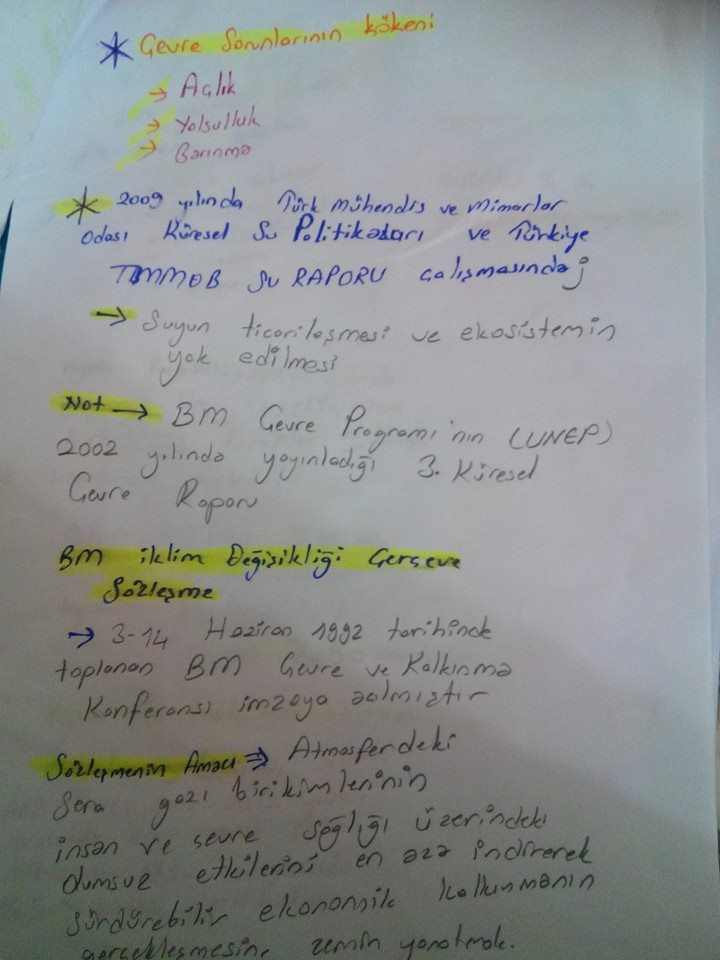 * Çevre Sorunlarının kökeni
→ Açlık
→ Yolsulluk
→ Barınma
* 2009 yılında Türk mühendis ve mimarlar
Odası Küresel Su Politikaları ve Türkiye
TMMOB SU RAPORU çalışmasında;
→ Suyun ticarileşmesi ve ekosistemin
yok edilmesi
Not → BM Çevre Programı'nın (UNEP)
2002 yılında yayınladığı 3. Küresel
Çevre Raporu
BM iklim Değişikliği Çerçeve
Sözleşme
→ 3-14 Haziran 1992 tarihinde
toplanan BM Çevre ve Kalkınma
Konferansı imzaya açılmıştır
Sözleşmenin Amacı ⇒ Atmosferdeki
Sera gazı birikimlerinin
insan ve çevre sağlığı üzerindeki
olumsuz etkilerini en aza indirerek
sürdürebilir ekonomik kalkınmanın
gerçekleşmesine zemin yaratmak.